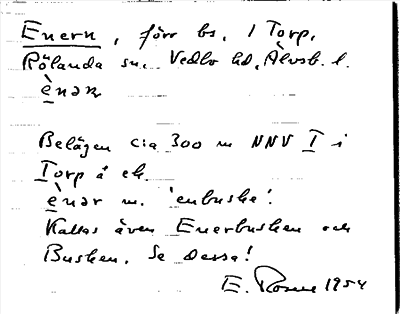 Enern, förr bs. 1 Torp,
Rölanda sn. Vedbo hd, Älvsb. l.
ènən
Belägen c:a 300 m NNV I i
Torp å ek.
ènər m. 'enbuske'.
Kallas även Enerbusken och
Busken. Se dessa!
E. Rosen 1954